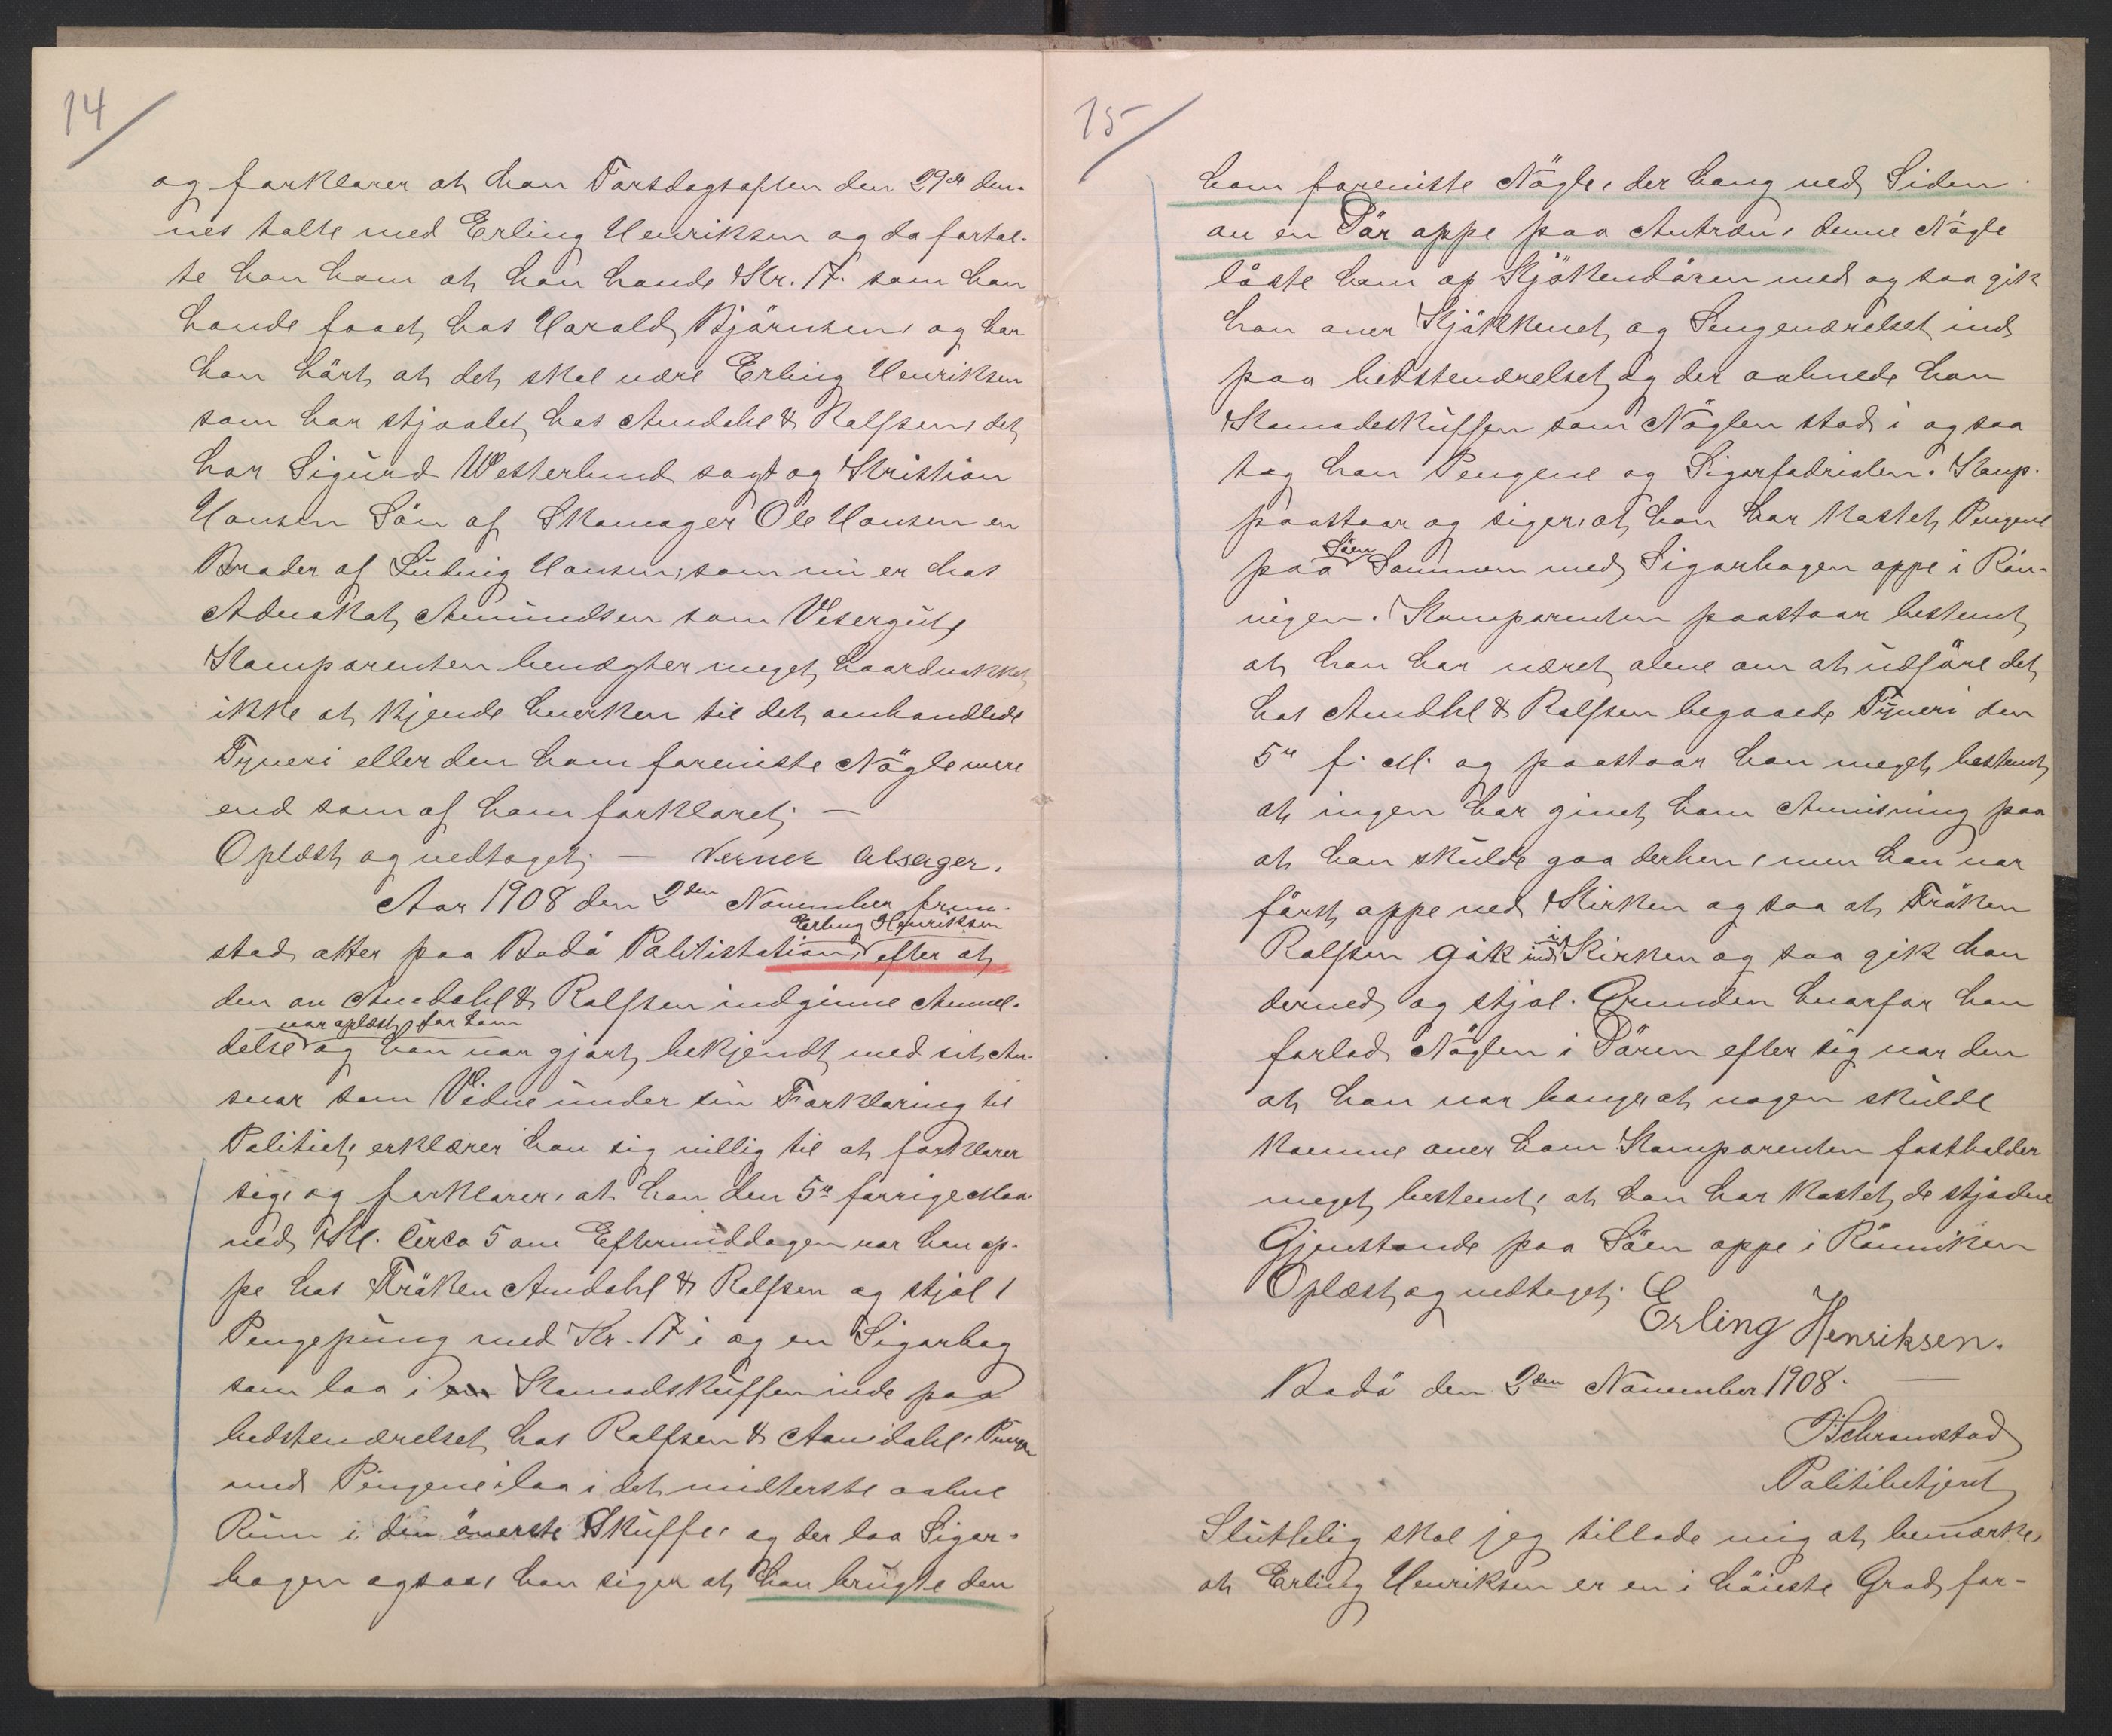 14
og forklarer at han Torsdagsaften den 29de den-
nes talte med Erling Henriksen og da fortal-
te han ham at han havde Kr. 17. som han
havde faaet hos Harald Bjørnsen, og har
han hört at det skal være Erling Henriksen
som har stjaalet hos Amdahl & Rolfsen, det
har Sigurd Westerlund sagt og Kristian
Hansen Sön af Skomager Ole Hansen en
Broder af Ludvig Hansen, som nu er hos
Advokat Amundsen som Visergut,
Komparenten benægter meget haardnakket
ikke at kjende hverken til det omhandlede
Tyveri eller den ham foreviste Nögle mere
end som af ham forklaret. —
Oplæst og vedtaget. — Verner Alsager.
Aar 1908 den 2den November frem-
Erling Henriksen
stod atter paa Bodö Politistation, efter at
den av Amdahl & Rolfsen indgivne Anmel-
var oplæst for ham
delse og han var gjort bekjendt med sit An-
svar som Vidne under sin Forklaring til
Politiet, erklærer han sig villig til at forklarer
sig, og forklarer, at han den 5te forrige Maa-
ned Kl. Circa 5 om Eftermiddagen var han op-
pe hos Fröken Amdahl & Rolfsen og stjal 1
Pengepung med Kr. 17 i og en Sigarbog
som laa i en Komodskuffen inde paa
bedsteværelset hos Rolfsen & Amdahl, Pungen
med Pengene i laa i det midterste aabne
Rum i den överste Skuffe, og der laa Sigar-
bogen ogsaa, han siger at han brugte den
15
ham foreviste Nögle, der hang ved Siden
av en Dör oppe paa Antræn, denne Nögle
låste ham op Kjökkendören med og saa gik
han over Kjökkenet og Sengeværelset ind
paa bedsteværelset og der aabnede han
Komodeskuffen som Nöglen stod i og saa
tog han Pengene og Sigarfodralen. Komp.
paastaar og siger, at han har kastet Pengene
Söen
paa Sammen med Sigarbogen oppe i Rön-
vigen. Komparenten paastaar bestemt
at han har været alene om at udføre det
hos Amdhl & Rolfsen begaaede Tyveri den
5te f. M. og paastaar han meget bestemt
at ingen har givet ham Anvisning paa
at han skulde gaa derhen, men han var
först oppe ved Kirken og saa at Fröken
i
Rolfsen gik ind Kirken og saa gik han
derned og stjal. Grunden hvorfor han
forlod Nöglen i Dören efter sig var den
at han var bange at nogen skulde
komme over ham. Komparenten fastholder
meget bestemt, at han har kastet de stjaalne
Gjenstande paa Söen oppe i Rönviken
Oplæst og vedtaget.
Erling Henriksen.
Bodö den 2den November 1908. —
Politibetjent
Sluttelig skal jeg tillade mig at bemærke,
at Erling Henriksen er en i höieste Grad for-